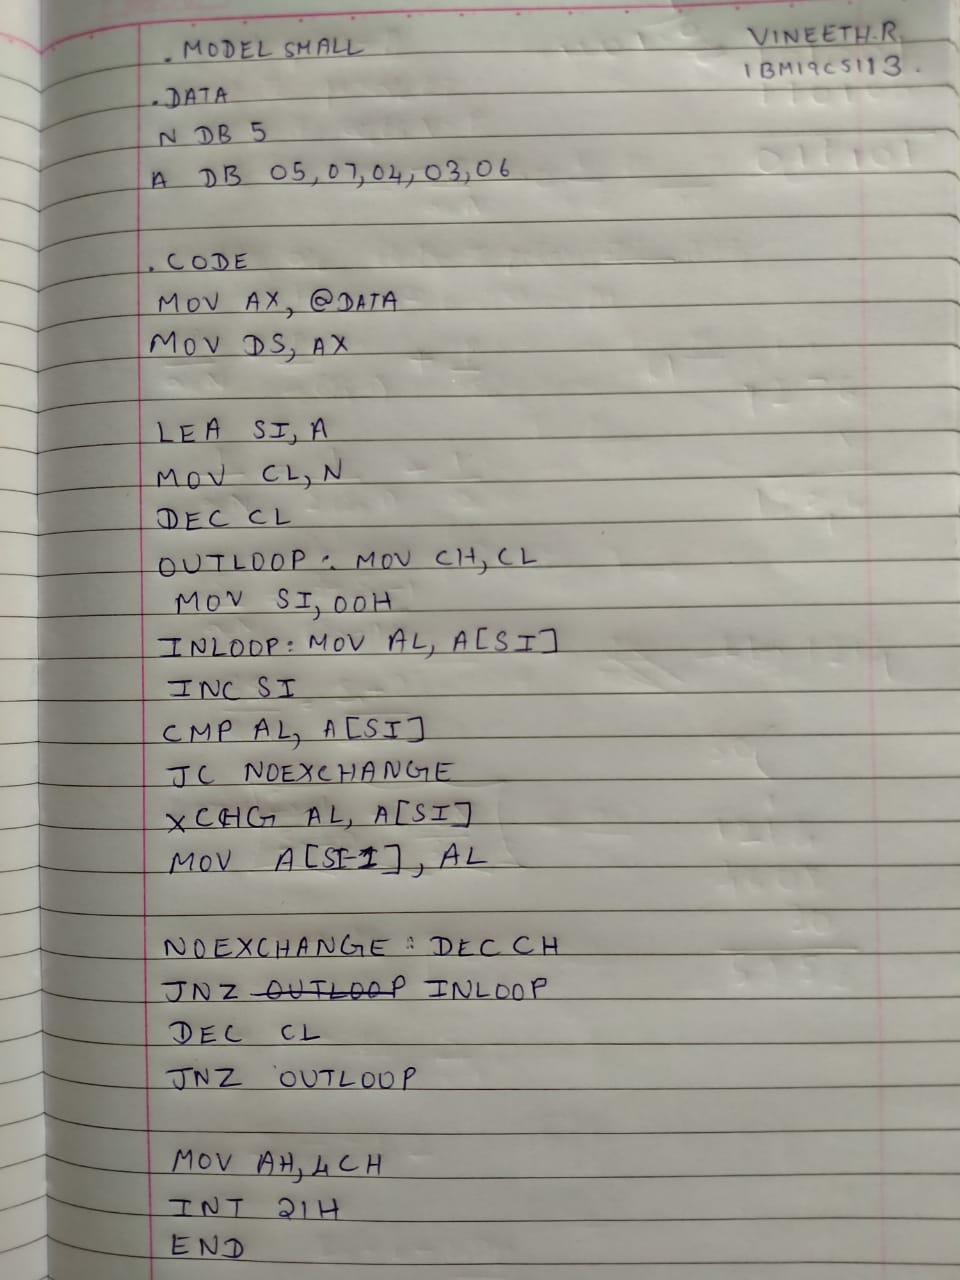 .MODEL SMALL
VINEETH.R.
1BM19CS113.
.DATA
N DB 5
A DB 05,07,04,03,06
.CODE
MOV AX, @DATA
MOV DS, AX
LEA SI, A
MOV CL, N
DEC CL
OUTLOOP: MOV CH, CL
MOV SI, 00H
INLOOP: MOV AL, A[SI]
INC SI
CMP AL, A[SI]
JC NOEXCHANGE
XCHG AL, A[SI]
MOV A[SI-1], AL
NOEXCHANGE: DEC CH
JNZ OUTLOOP INLOOP
DEC CL
JNZ OUTLOOP
MOV AH, 4CH
INT 21H
END